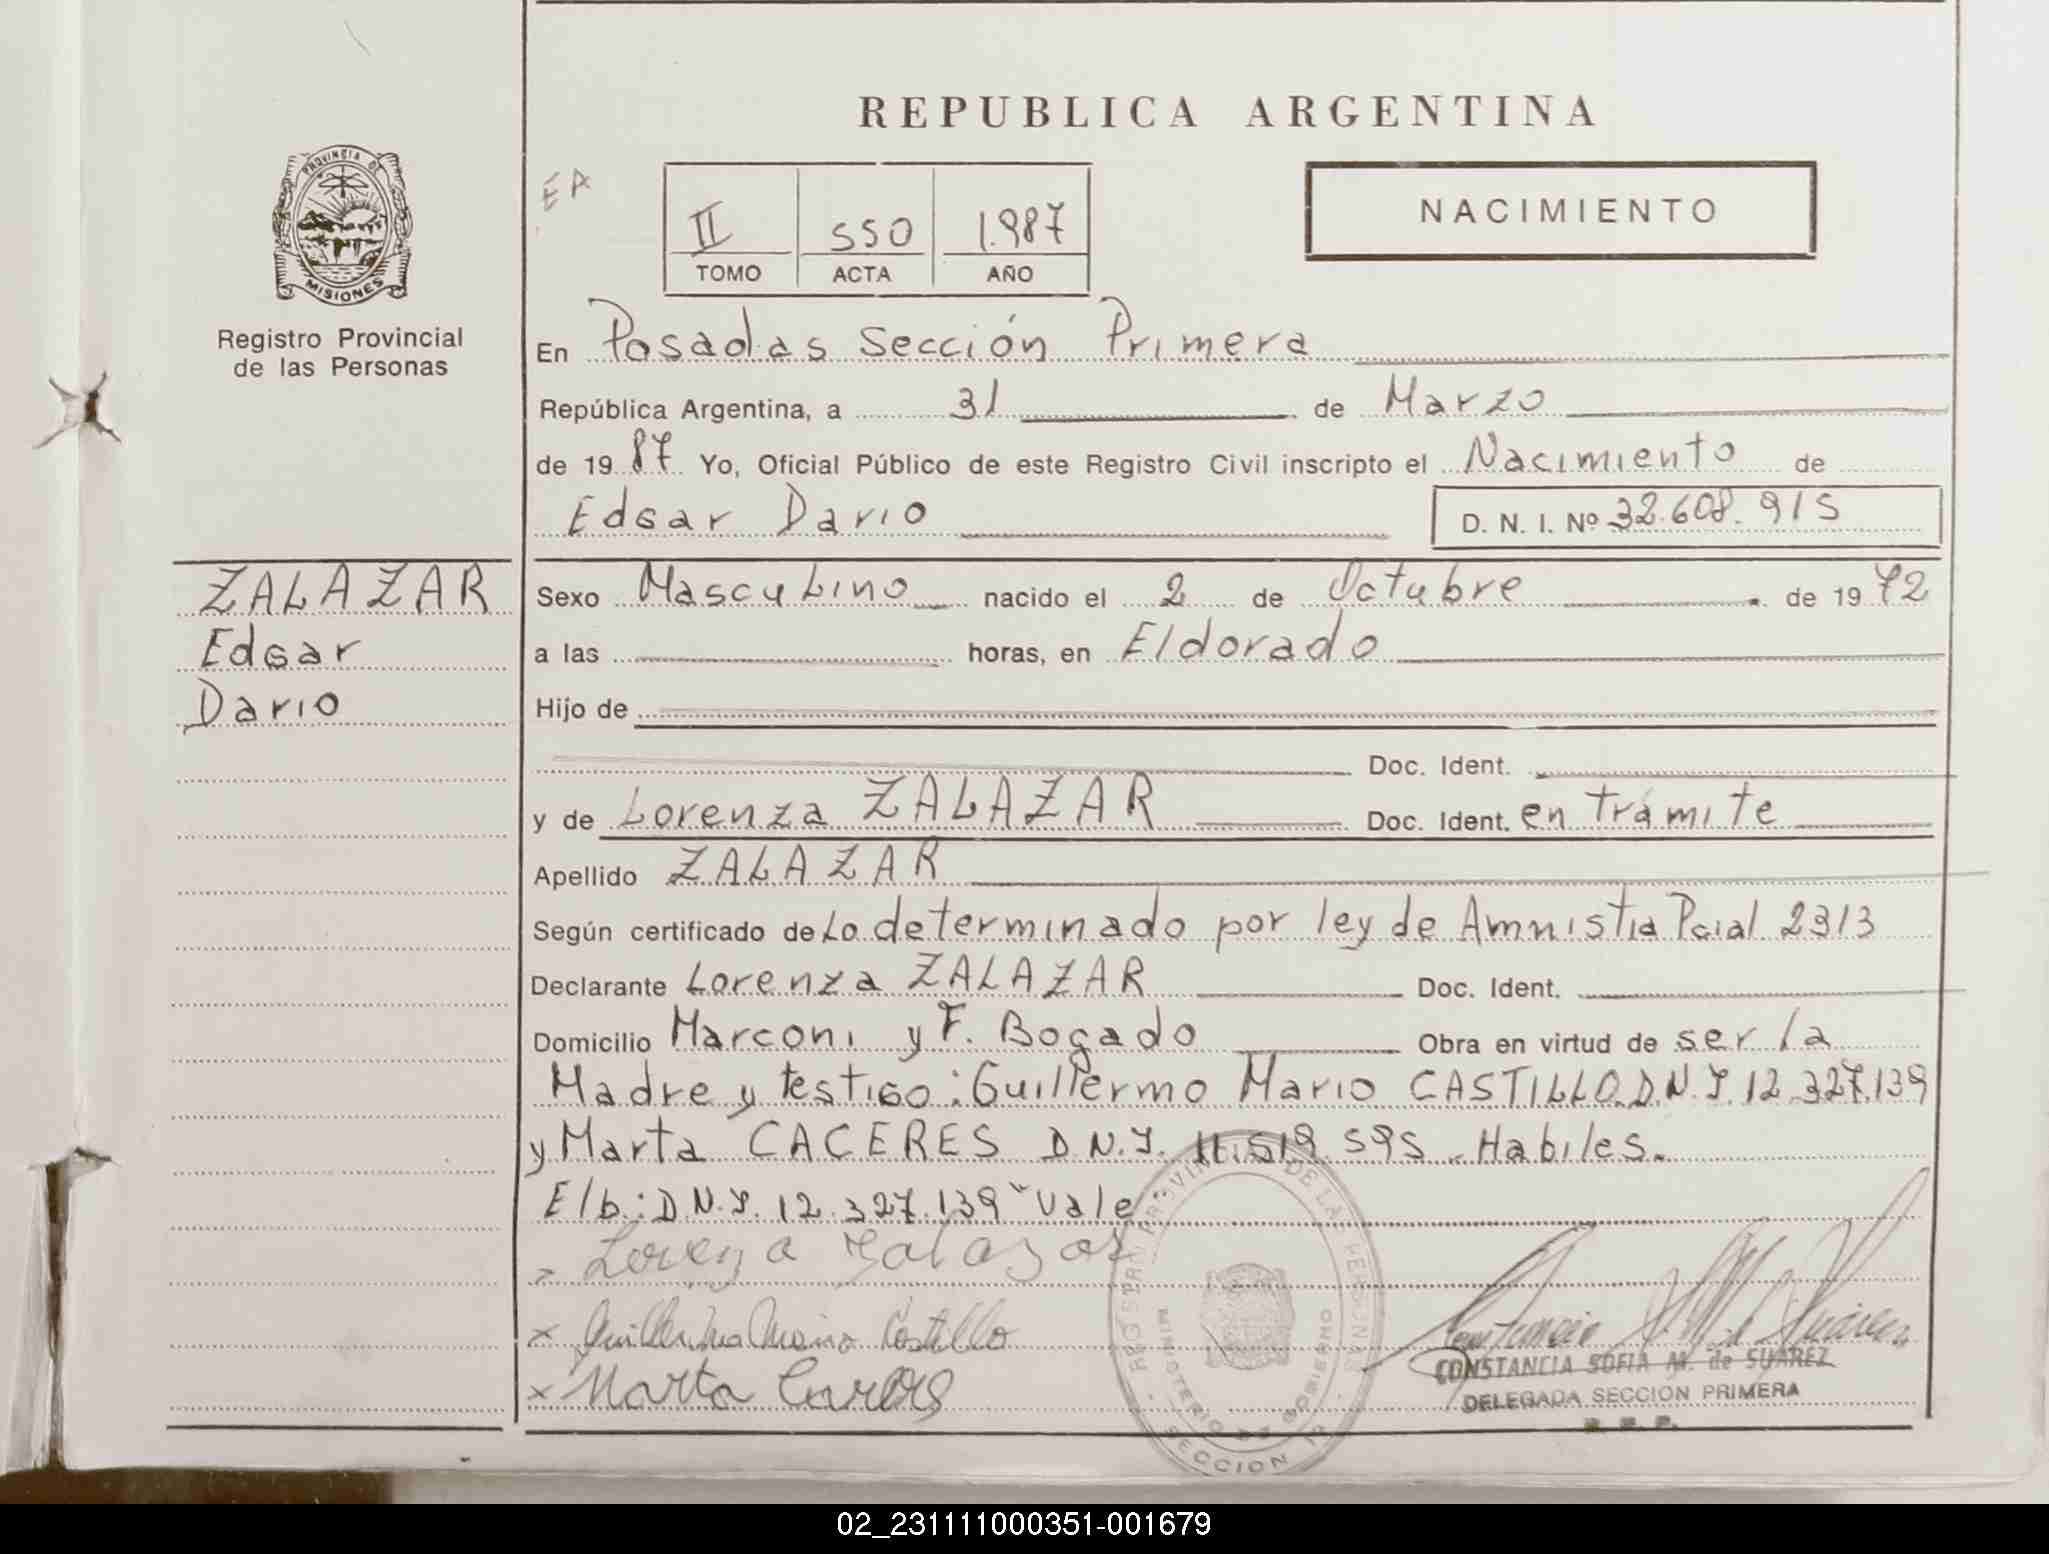 REPUBLICA ARGENTINA
PROVINCIA DE
MISIONES
Registro Provincial
de las Personas
EA
II 550 1.987
TOMO ACTA AÑO
NACIMIENTO
En Posadas Sección Primera
República Argentina, a 31 de Marzo
de 1987 Yo, Oficial Público de este Registro Civil inscripto el Nacimiento de
Edgar Dario D. N. I. Nº 32.608.915
ZALAZAR
Edgar
Dario
Sexo Masculino nacido el 2 de Octubre de 1972
a las horas, en Eldorado
Hijo de
Doc. Ident.
y de Lorenza ZALAZAR Doc. Ident. en trámite
Apellido ZALAZAR
Según certificado de Lo determinado por ley de Amnistia Pcial 2313
Declarante Lorenza ZALAZAR Doc. Ident.
Domicilio Marconi y F. Bogado Obra en virtud de ser la
Madre y testigo: Guillermo Mario CASTILLO D.N.I. 12.327.139
y Marta CACERES D.N.I. 11.519.595 - Habiles.
E/b: D.N.I. 12.327.139 "Vale"
Lorenza Zalazar
x Guillermo Mario Castillo
x Marta Caceres
REGISTRO PROVINCIAL DE LAS PERSONAS
MINISTERIO DE GOBIERNO
SECCION 1a
CONSTANCIA SOFIA M. de SUAREZ
DELEGADA SECCION PRIMERA
R. P. P.
02_231111000351-001679